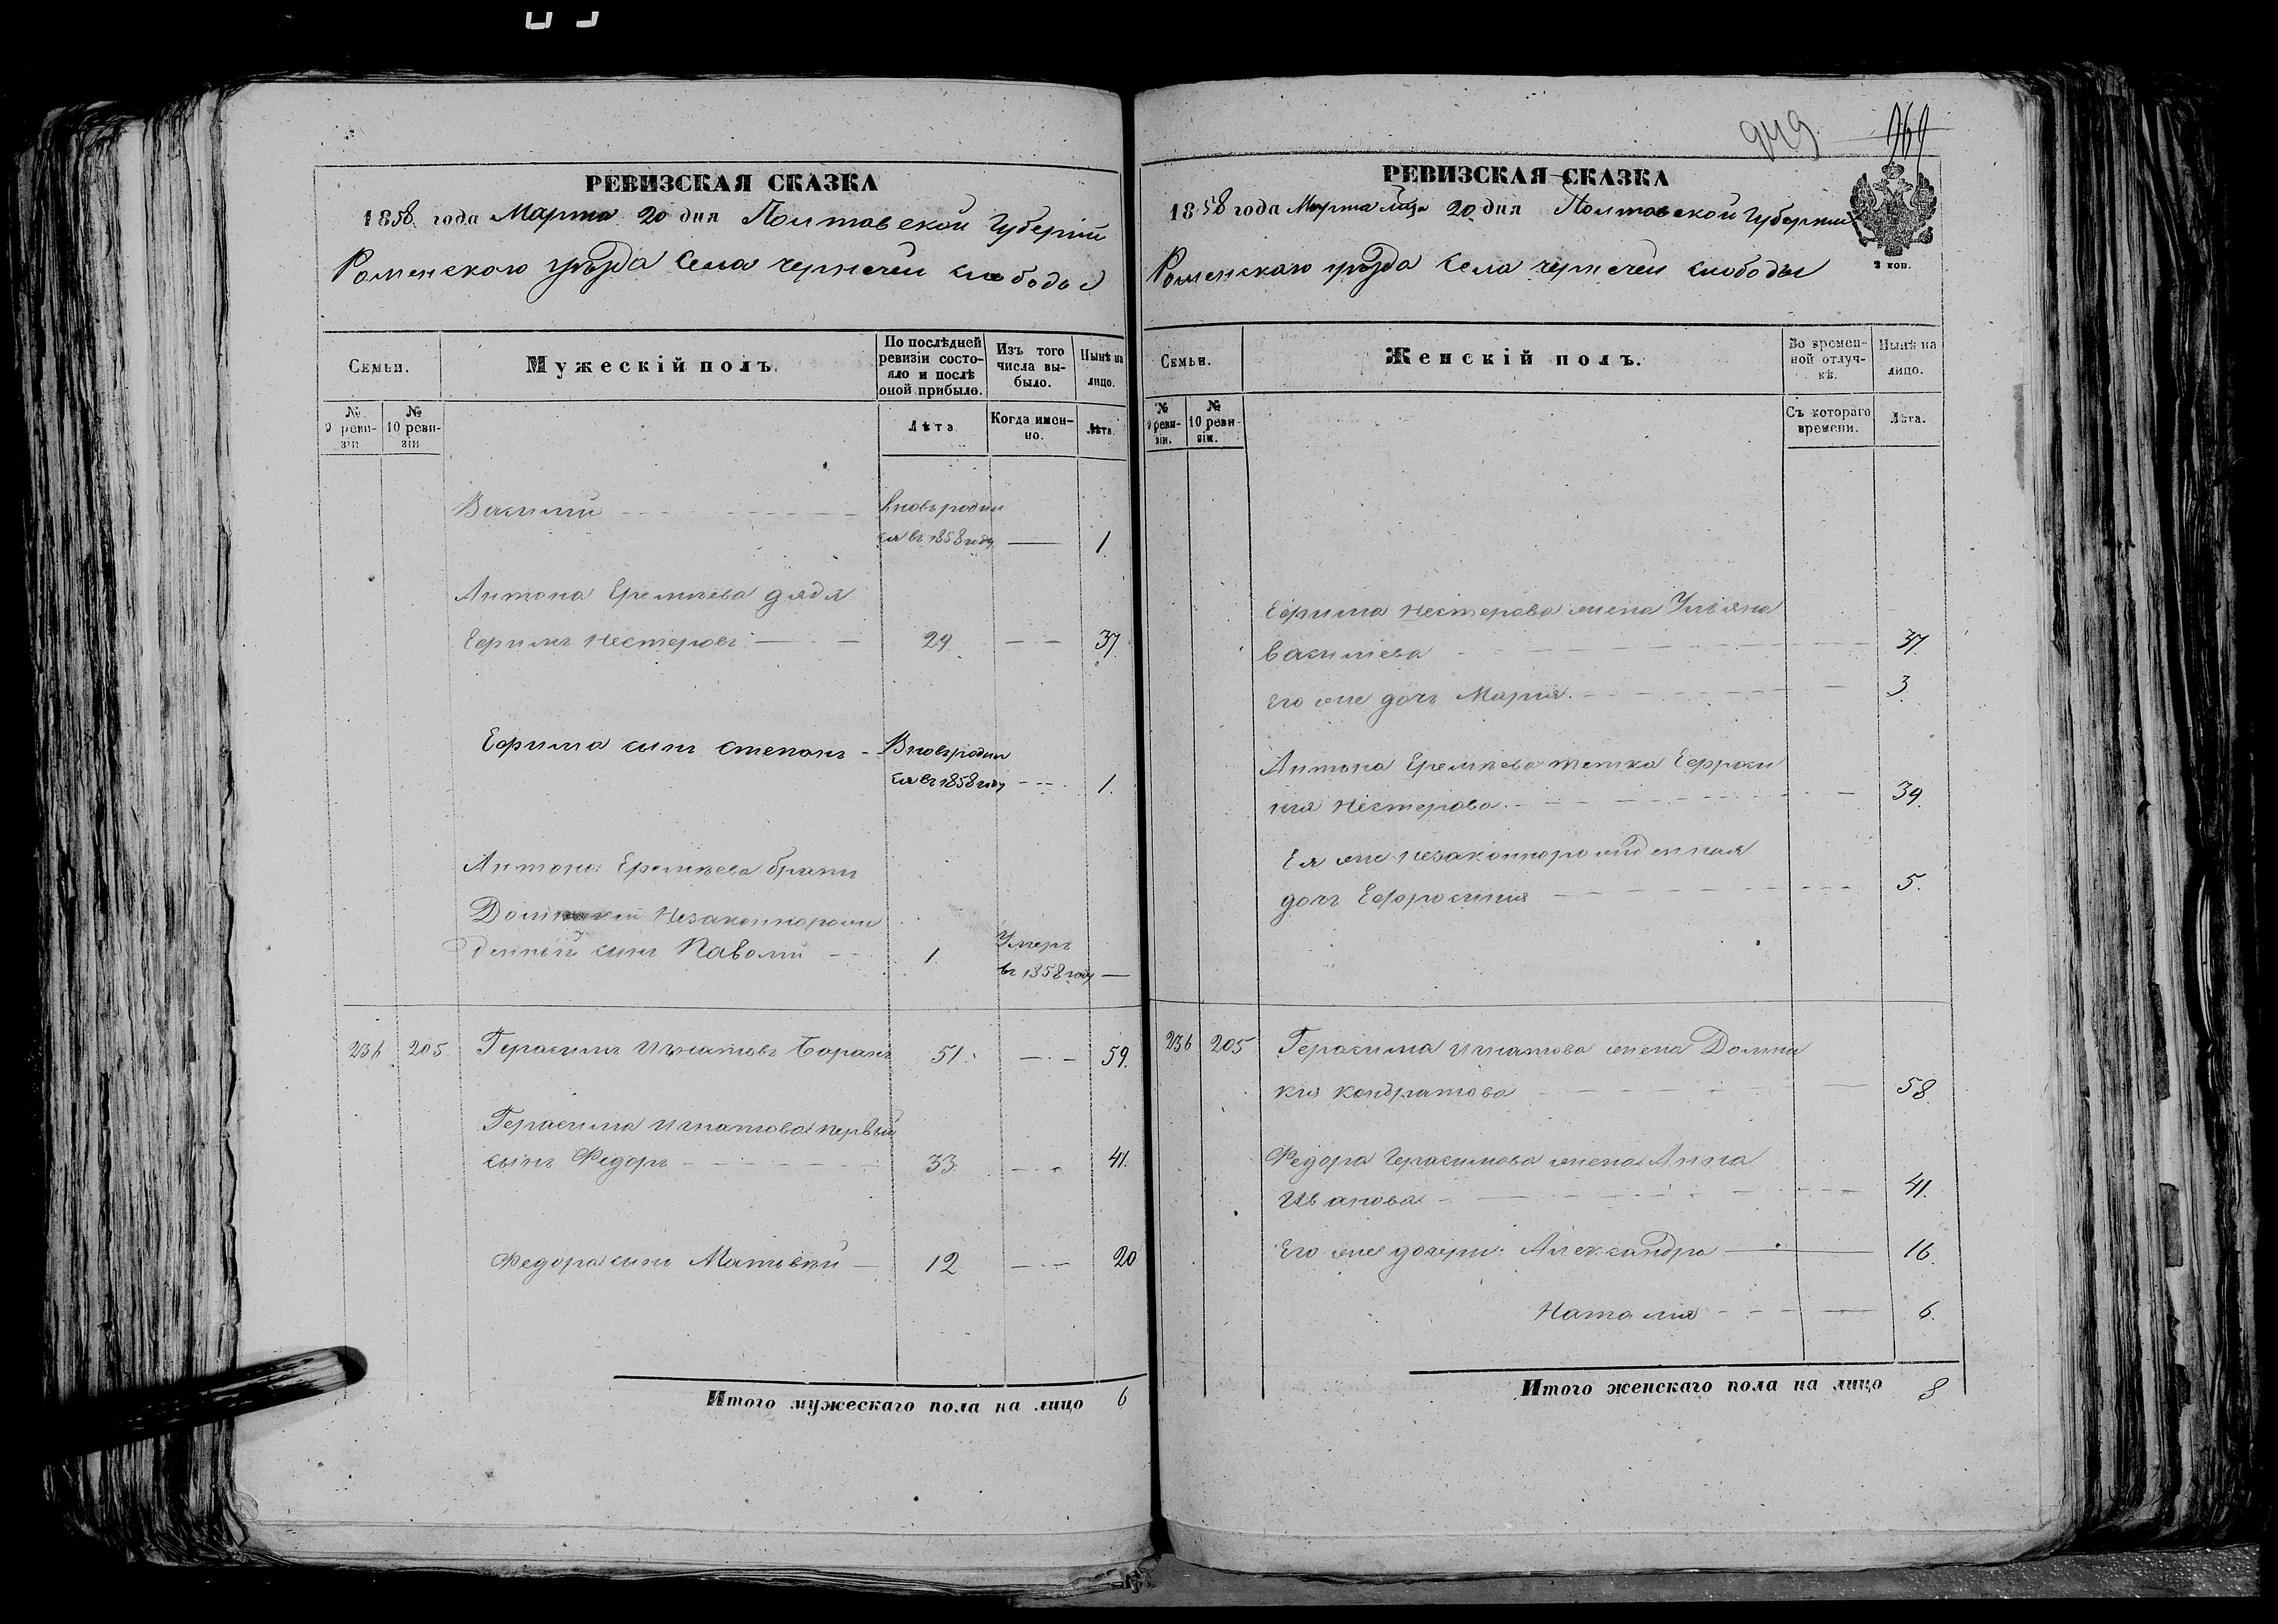 РЕВИЗСКАЯ СКАЗКА
1858 года Марта 20 дня Полтавской Губерніи
Роменскаго уѣзда Села чернечей слободы
Семьи.
Мужескій полъ.
По послѣдней ревизіи состояло и послѣ оной прибыло.
Изъ того числа выбыло.
Нынѣ на лицо.
№ 9 ревизіи
№ 10 ревизіи
Лѣта
Когда именно.
Лѣта.
Василій
вновь родил
ся въ 1858 году — 1.
Антона Еремѣева дядя
Ефимъ Нестеровъ — 29 — — 37.
Ефима сынъ степанъ - Вновь родил
ся въ 1858 году --- 1.
Антона Еремѣева братъ
Незаконнорож
денный сынъ — 1. Умеръ
въ 1858 году —
236 205 Герасимъ Игнатовъ Баранъ 51. — 59.
Герасима Игнатова первый
сынъ Федоръ — 33. — 41.
Федора сынъ Матвѣй — 12 — 20
Итого мужескаго пола на лицо 6
949 969
РЕВИЗСКАЯ СКАЗКА
1858 года Марта мца 20 дня Полтавской Губерніи
Роменскаго уѣзда Села чернечей слободы
2 коп.
Семьи.
Женскій полъ.
Во временной отлучкѣ.
Нынѣ на лицо.
№ 9 ревизіи.
№ 10 ревизіи.
Съ котораго времени.
Лѣта.
Ефима Нестерова жена Ульяна
Васильева — 37.
Его же дочь Марія. — 3.
Антона Еремѣева тетка Ефроси
нія Нестерова. — 39.
Ея же незаконнорожденная
дочь Ефросинія — 5.
236 205 Герасима Игнатова жена Домни
кія Кондратова — 58.
Федора Герасимова жена Анна
Иванова — 41.
Его же дочери: Александра — 16.
Наталія — 6.
Итого женскаго пола на лицо 8